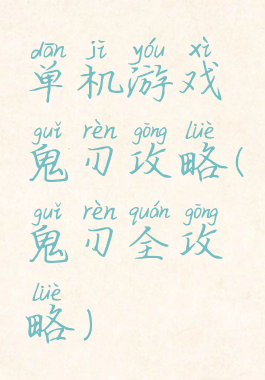 dān jī yóu xì
单机游戏
guǐ rèn gōng lüè
鬼刃攻略(
guǐ rèn quán gōng
鬼刃全攻
lüè
略)